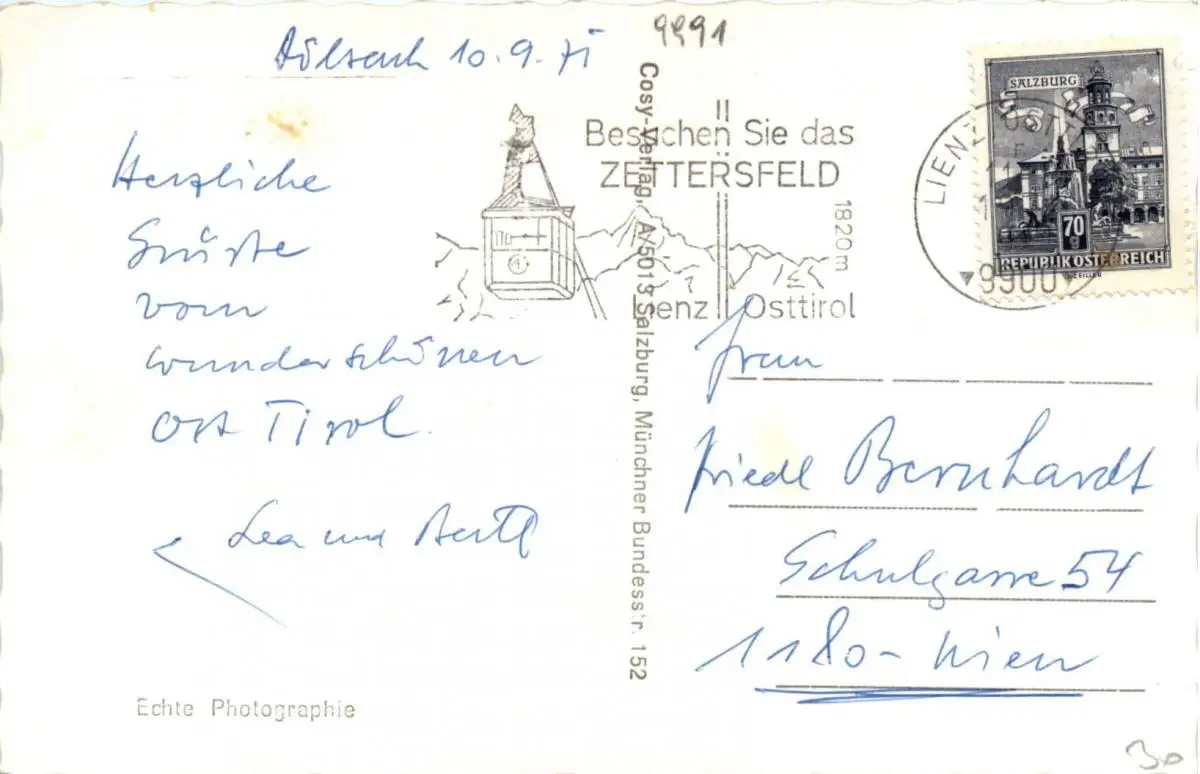 9991
Dölsach 10.9.71
Herzliche
Grüße
vom
wunderschönen
Ost Tirol.
Lea und Bertl
Echte Photographie
Cosy-Verlag, A/5013 Salzburg, Münchner Bundesstr. 152
Besuchen Sie das
ZETTERSFELD
1820m
Lienz Osttirol
LIENZ
9900
SALZBURG
70
g
REPUBLIK ÖSTERREICH
Frau
Friedl Bernhardt
Schulgasse 54
1180-Wien
30